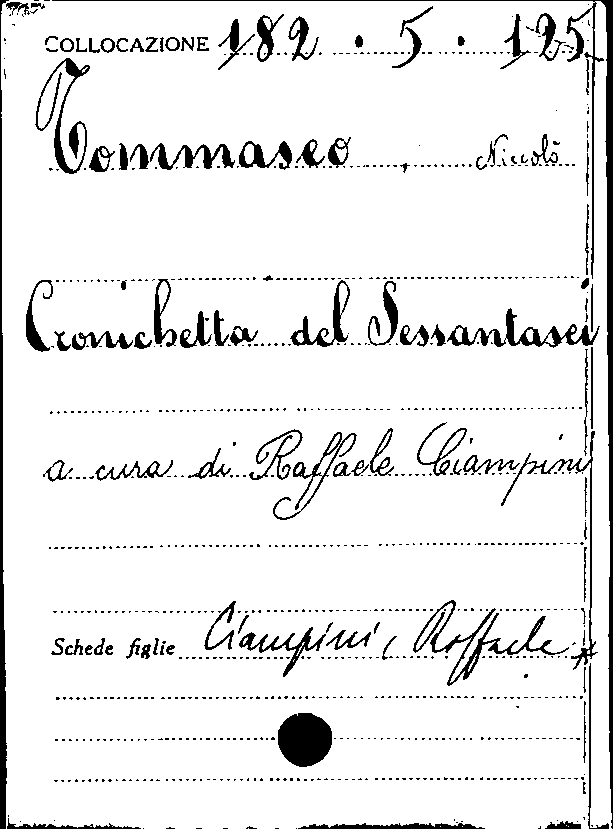 COLLOCAZIONE 182 . 5 . 125
Tommaseo , Niccolò
Cronichetta del Sessantasei
a cura di Raffaele Ciampini
Schede figlie Ciampini, Raffaele *